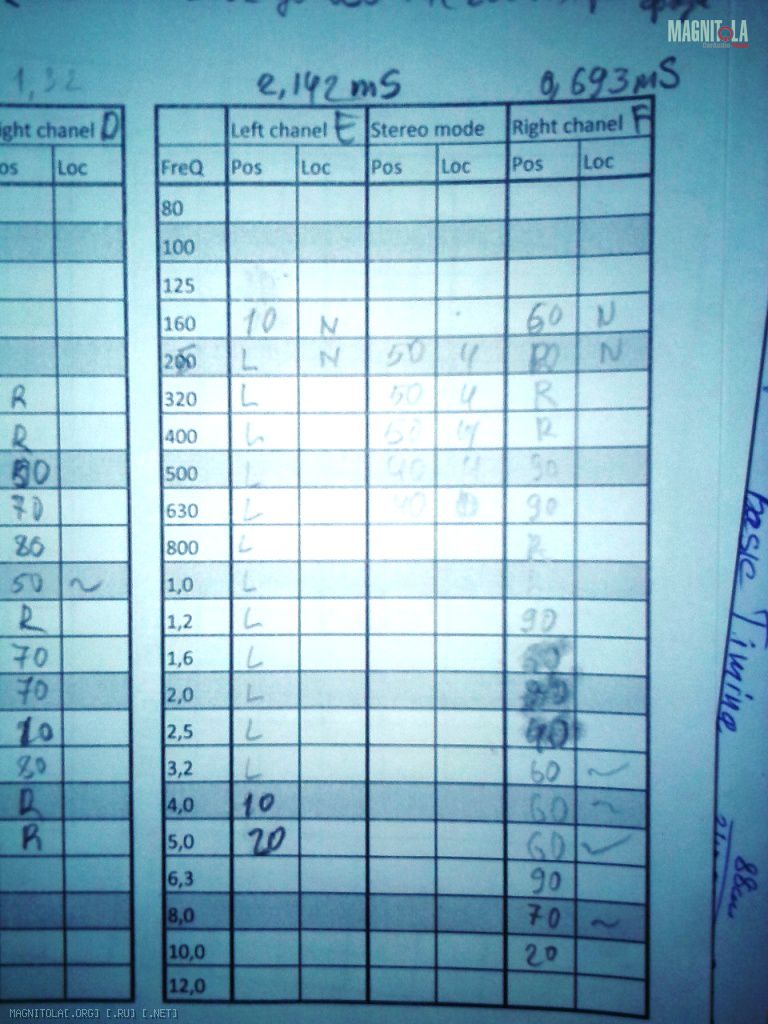 MAGNITOLA
1,32 2,142 mS 0,693 mS
ight chanel D Left chanel E Stereo mode Right chanel F
os Loc FreQ Pos Loc Pos Loc Pos Loc
80
100
125
160 10 N 60 N
200 L N 50 4 N
R 320 L 50 4 R
R 400 L 50 4 R
90 500 L 40 4 90
70 630 L 40 90
80 800 L R
50 ~ 1,0 L
R 1,2 L 90
70 1,6 L
70 2,0 L
2,5 L 90
80 3,2 L 60 ~
R 4,0 10 60 ~
R 5,0 20 60 ~
6,3 90
8,0 70 ~
10,0 20
12,0
basic Timing
88cm
MAGNITOLA[.ORG] [.RU] [.NET]